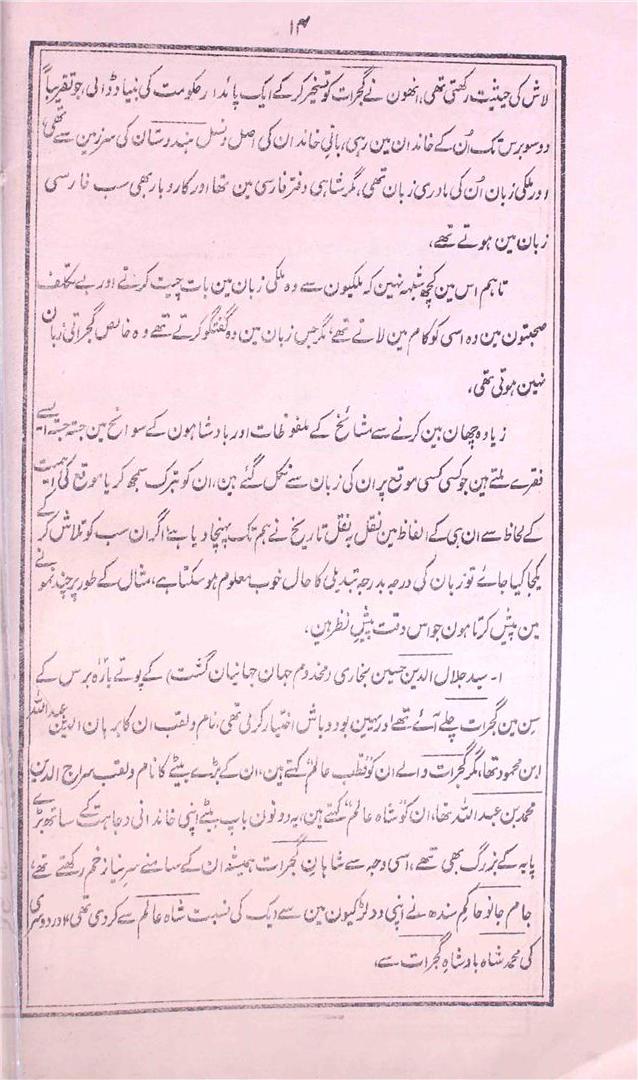 ۱۴
لاش کی حیثیت رکھتی تھی، انھون نے گجرات کو تسخیر کرکے ایک پائدار حکومت کی بنیاد ڈالی، جو تقریباً
دو سو برس تک اُن کے خاندان مین رہی، بانیِ خاندان کی اصل و نسل ہندوستان کی سرزمین سے تھی،
اور ملکی زبان اُن کی مادری زبان تھی، مگر شاہی دفتر فارسی مین تھا اور کاروبار بھی سب فارسی
زبان مین ہوتے تھے،
تاہم اس مین کچھ شبہہ نہین کہ ملکیون سے وہ ملکی زبان مین بات چیت کرتے اور بے تکلف
صحبتون مین وہ اسی کو کام مین لاتے تھے، مگر جس زبان مین وہ گفتگو کرتے تھے وہ خالص گجراتی زبان
نہین ہوتی تھی،
زیادہ چھان بین کرنے سے مشائخ کے ملفوظات اور بادشاہون کے سوانح مین جستہ جستہ ایسے
فقرے ملتے ہین جو کسی کسی موقع پر ان کی زبان سے نکل گئے ہین، ان کو تبرک سمجھ کر یا موقع کی اہمیت
کے لحاظ سے ان ہی کے الفاظ مین نقل بہ نقل تاریخ نے ہم تک پہنچا دیا ہے، اگر ان سب کو تلاش کرکے
یکجا کیا جائے تو زبان کی درجہ بدرجہ تبدیلی کا حال خوب معلوم ہو سکتا ہے، مثال کے طور پر چند نمونے
مین پیش کرتا ہون جو اس وقت پیشِ نظر ہین،
۱- سید جلال الدین حسین بخاری (مخدوم جہان جہانیان گشت) کے پوتے بارہ برس کے
سِن مین گجرات چلے آئے تھے اور یہین بود و باش اختیار کر لی تھی، نام و لقب ان کا برہان الدین عبد اللہ
ابن محمود تھا، مگر گجرات والے ان کو قطب عالم کہتے ہین، ان کے بڑے بیٹے کا نام و لقب سراج الدین
محمد بن عبد اللہ تھا، ان کو شاہ عالم کہتے ہین، یہ دونون باپ بیٹے اپنی خاندانی وجاہت کے ساتھ بڑے
پایہ کے بزرگ بھی تھے، اسی وجہ سے شاہانِ گجرات ہمیشہ ان کے سامنے سرِ نیاز خم رکھتے تھے،
جام جانو حاکم سندھ نے اپنی دو لڑکیون مین سے ایک کی نسبت شاہ عالم سے کر دی تھی، اور دوسری
کی محمد شاہ بادشاہ گجرات سے،